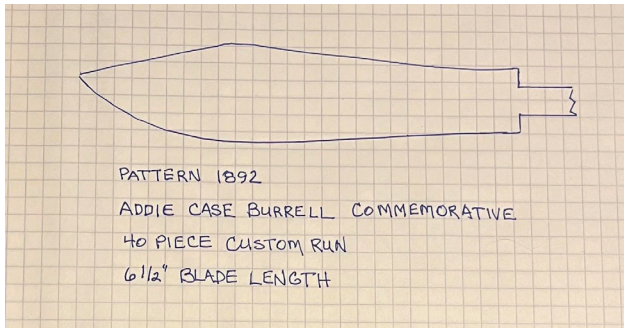 PATTERN 1892
ADDIE CASE BURRELL COMMEMORATIVE
40 PIECE CUSTOM RUN
6 1/2" BLADE LENGTH